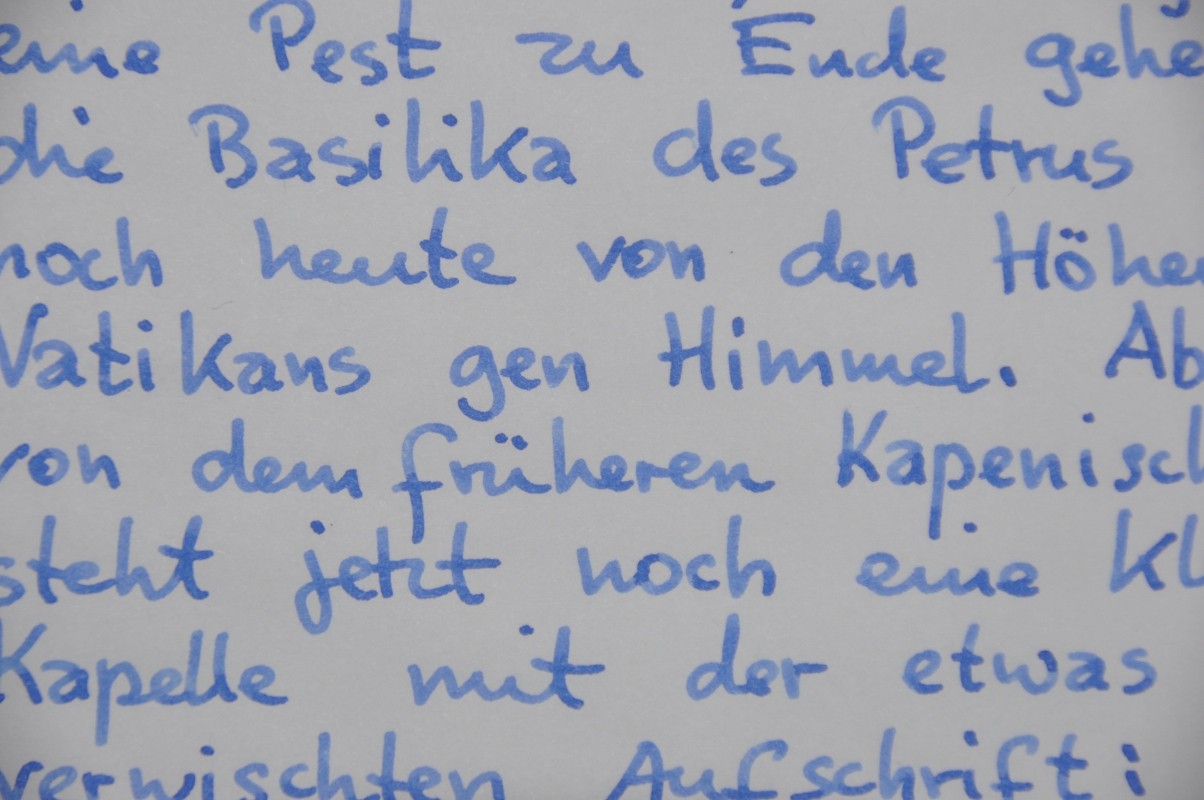 eine Pest zu Ende gehe
die Basilika des Petrus
noch heute von den Höhen
Vatikans gen Himmel. Ab
von dem früheren Kapenisch
steht jetzt noch eine kl
Kapelle mit der etwas
verwischten Aufschrift: